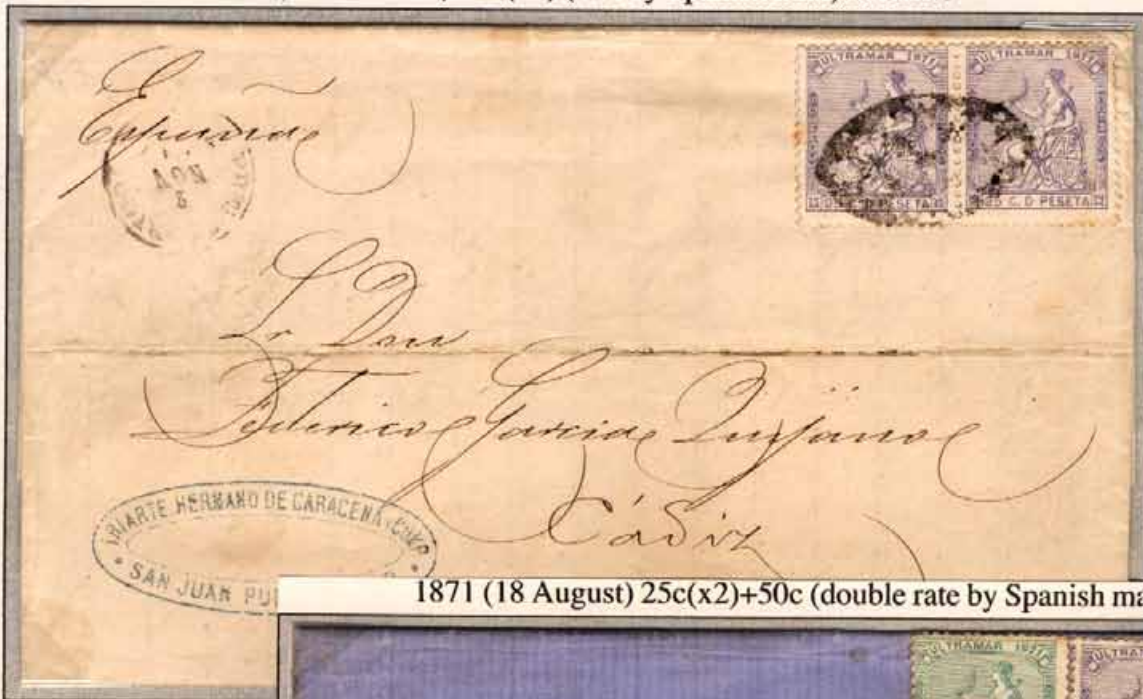 España
NOV
ULTRAMAR 1871
ULTRAMAR 1871
C. D PESETA
25 C. D PESETA
Sr Don
Federico Garcia Quijano
Cádiz
IRIARTE HERMANO DE CARACENA
SAN JUAN PU
1871 (18 August) 25c(x2)+50c (double rate by Spanish ma
ULTRAMAR 1871
ULTRAMA